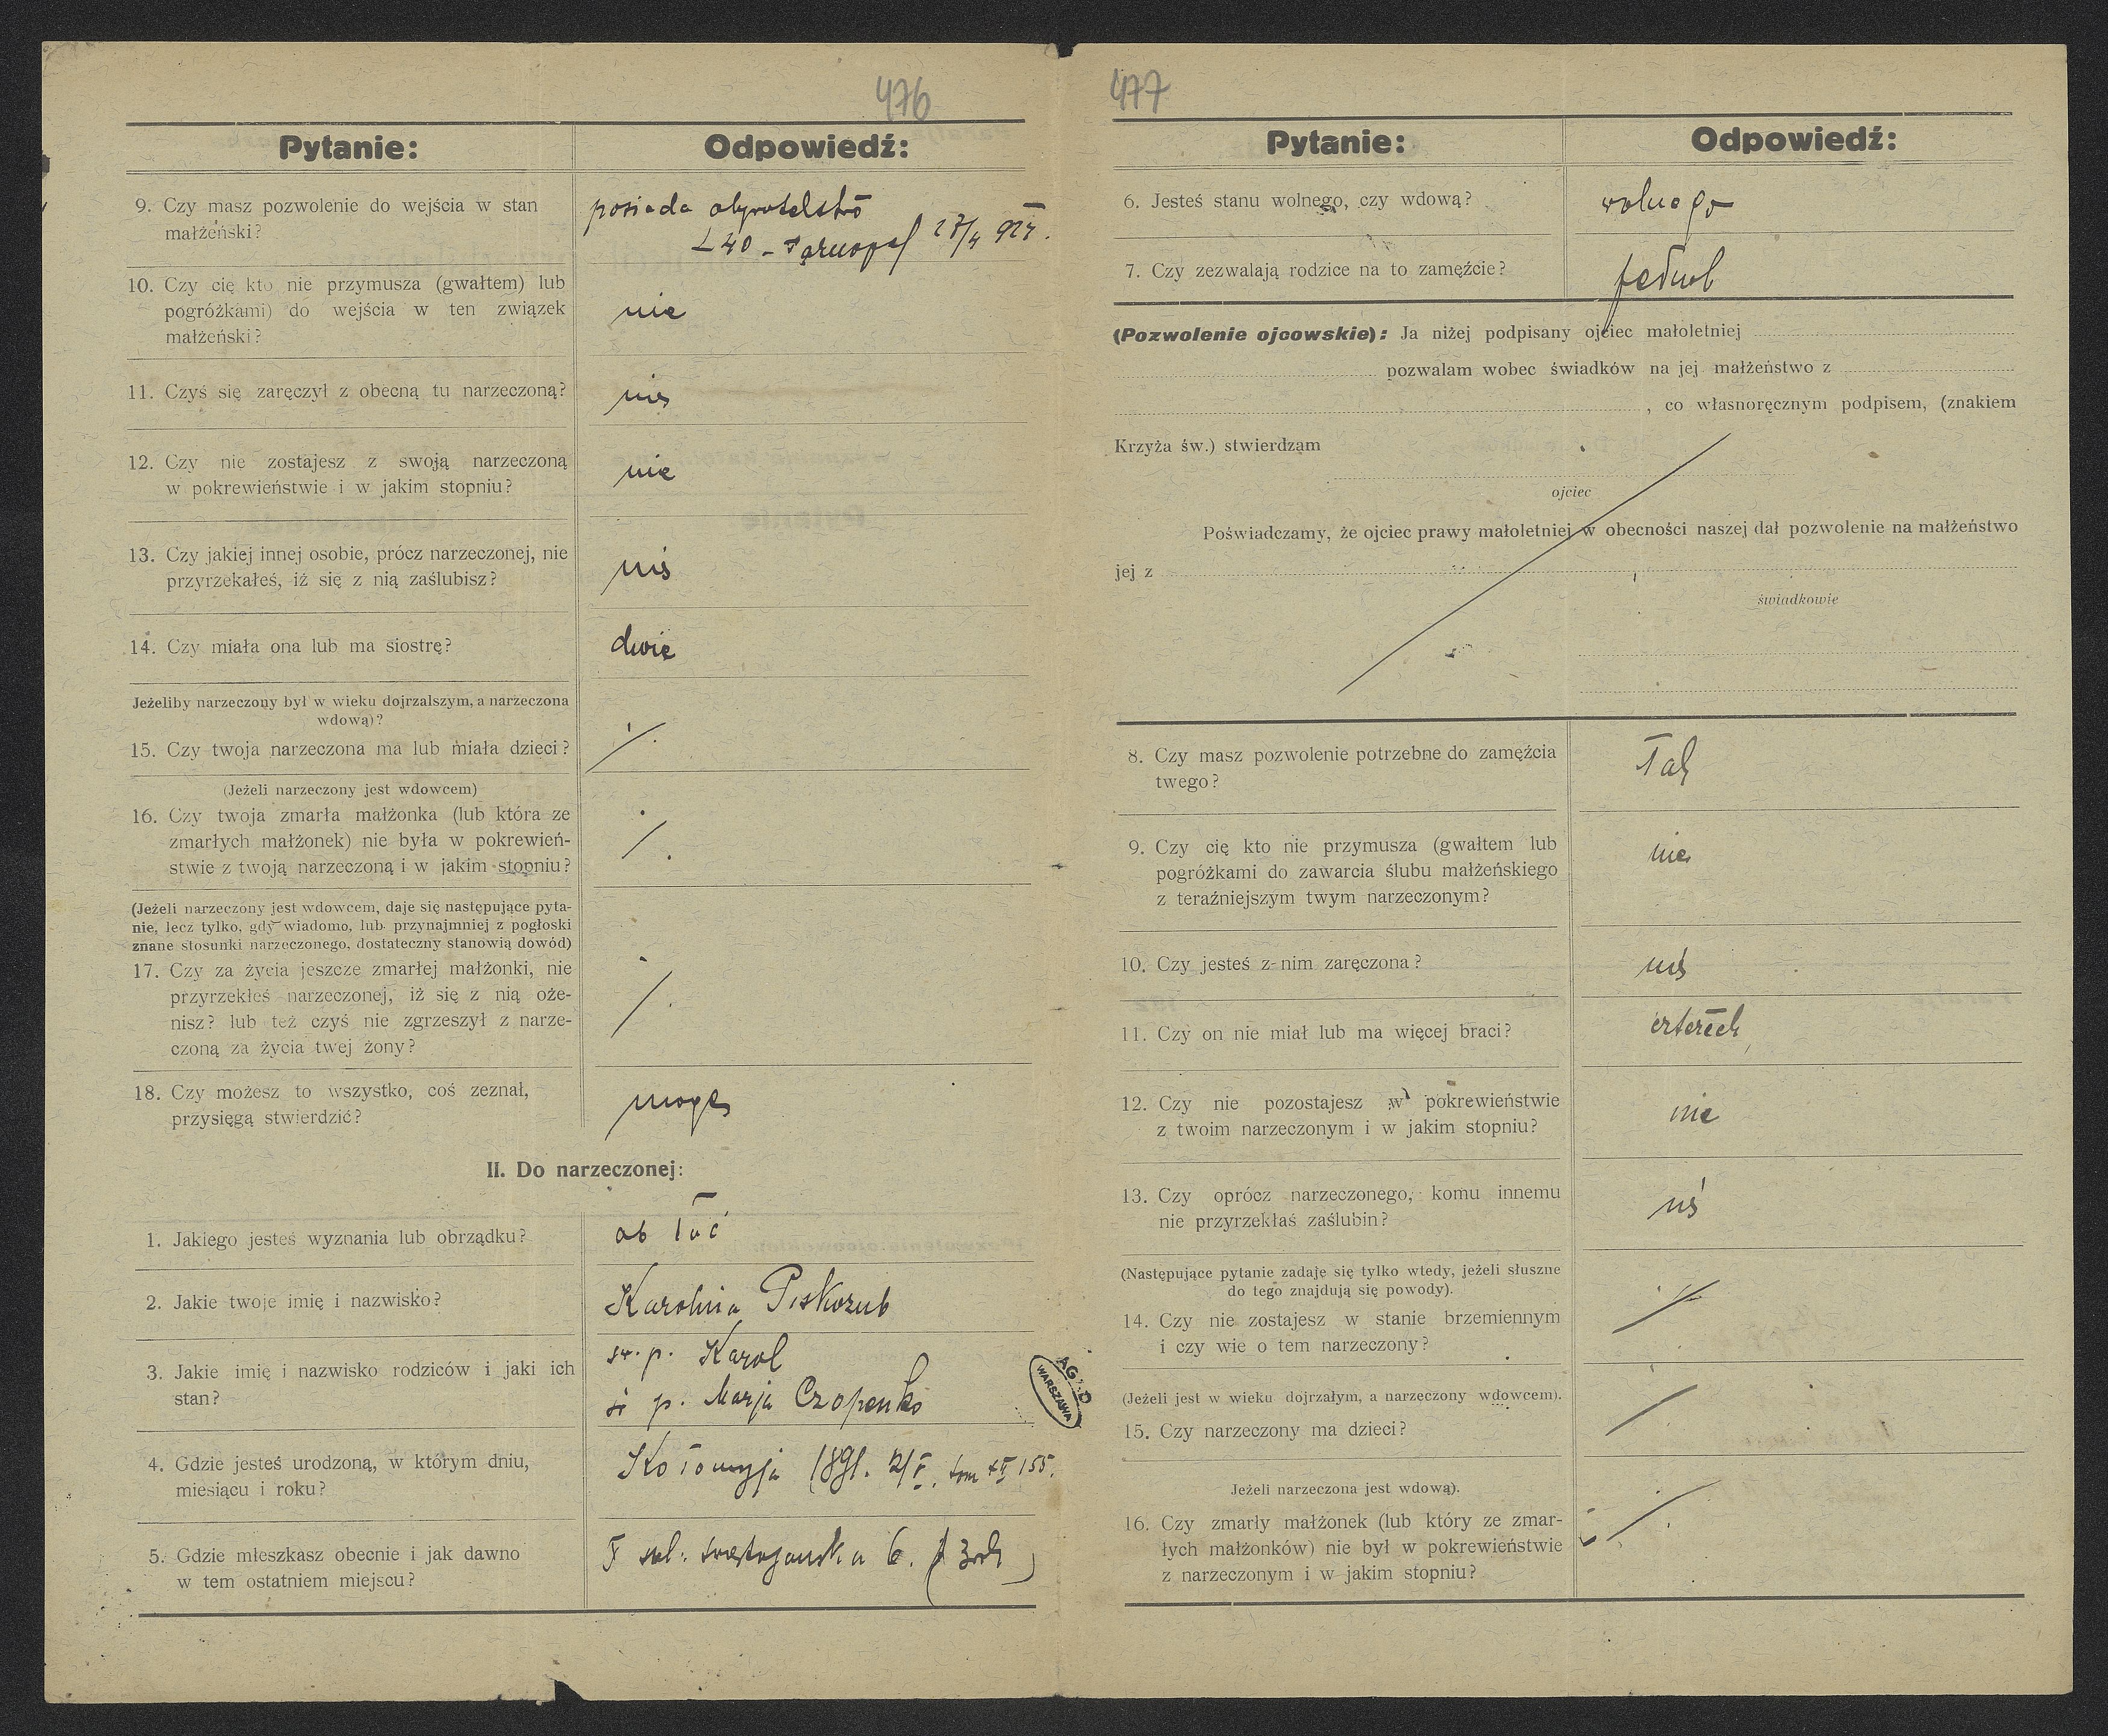 476
Pytanie: Odpowiedź:
9. Czy masz pozwolenie do wejścia w stan
małżeński?
posiada obywatelstwo
L 40 - Tarnopol 27/4 927.
10. Czy cię kto nie przymusza (gwałtem) lub
pogróżkami) do wejścia w ten związek
małżeński?
nie
11. Czyś się zaręczył z obecną tu narzeczoną?
nie
12. Czy nie zostajesz z swoją narzeczoną
w pokrewieństwie i w jakim stopniu?
nie
13. Czy jakiej innej osobie, prócz narzeczonej, nie
przyrzekałeś, iż się z nią zaślubisz?
nie
14. Czy miała ona lub ma siostrę?
dwie
Jeżeliby narzeczony był w wieku dojrzalszym, a narzeczona
wdową)?
15. Czy twoja narzeczona ma lub miała dzieci?
(Jeżeli narzeczony jest wdowcem)
16. Czy twoja zmarła małżonka (lub która ze
zmarłych małżonek) nie była w pokrewień-
stwie z twoją narzeczoną i w jakim stopniu?
(Jeżeli narzeczony jest wdowcem, daje się następujące pyta-
nie, lecz tylko, gdy wiadomo, lub przynajmniej z pogłoski
znane stosunki narzeczonego, dostateczny stanowią dowód)
17. Czy za życia jeszcze zmarłej małżonki, nie
przyrzekłeś narzeczonej, iż się z nią oże-
nisz? lub też czyś nie zgrzeszył z narze-
czoną za życia twej żony?
18. Czy możesz to wszystko, coś zeznał,
przysięgą stwierdzić?
mogę
II. Do narzeczonej:
1. Jakiego jesteś wyznania lub obrządku?
ob łać
2. Jakie twoje imię i nazwisko?
Karolina Piskozub
3. Jakie imię i nazwisko rodziców i jaki ich
stan?
ś. p. Karol
ś p. Marja Czopenko
4. Gdzie jesteś urodzoną, w którym dniu,
miesiącu i roku?
Kołomyja 1891. 21/V. tom 155.
5. Gdzie mieszkasz obecnie i jak dawno
w tem ostatniem miejscu?
świętojańska 6.
AG D
WARSZAWA
477
Pytanie: Odpowiedź:
6. Jesteś stanu wolnego, czy wdową?
wolnego
7. Czy zezwalają rodzice na to zamęźcie?
(Pozwolenie ojcowskie): Ja niżej podpisany ojciec małoletniej
pozwalam wobec świadków na jej małżeństwo z
, co własnoręcznym podpisem, (znakiem
Krzyża św.) stwierdzam
ojciec
Poświadczamy, że ojciec prawy małoletniej w obecności naszej dał pozwolenie na małżeństwo
jej z
świadkowie
8. Czy masz pozwolenie potrzebne do zamęźcia
twego?
Tak
9. Czy cię kto nie przymusza (gwałtem lub
pogróżkami do zawarcia ślubu małżeńskiego
z teraźniejszym twym narzeczonym?
nie
10. Czy jesteś z nim zaręczona?
nie
11. Czy on nie miał lub ma więcej braci?
czterech
12. Czy nie pozostajesz w pokrewieństwie
z twoim narzeczonym i w jakim stopniu?
nie
13. Czy oprócz narzeczonego, komu innemu
nie przyrzekłaś zaślubin?
nie
(Następujące pytanie zadaje się tylko wtedy, jeżeli słuszne
do tego znajdują się powody).
14. Czy nie zostajesz w stanie brzemiennym
i czy wie o tem narzeczony?
(Jeżeli jest w wieku dojrzałym, a narzeczony wdowcem).
15. Czy narzeczony ma dzieci?
Jeżeli narzeczona jest wdową).
16. Czy zmarły małżonek (lub który ze zmar-
łych małżonków) nie był w pokrewieństwie
z narzeczonym i w jakim stopniu?